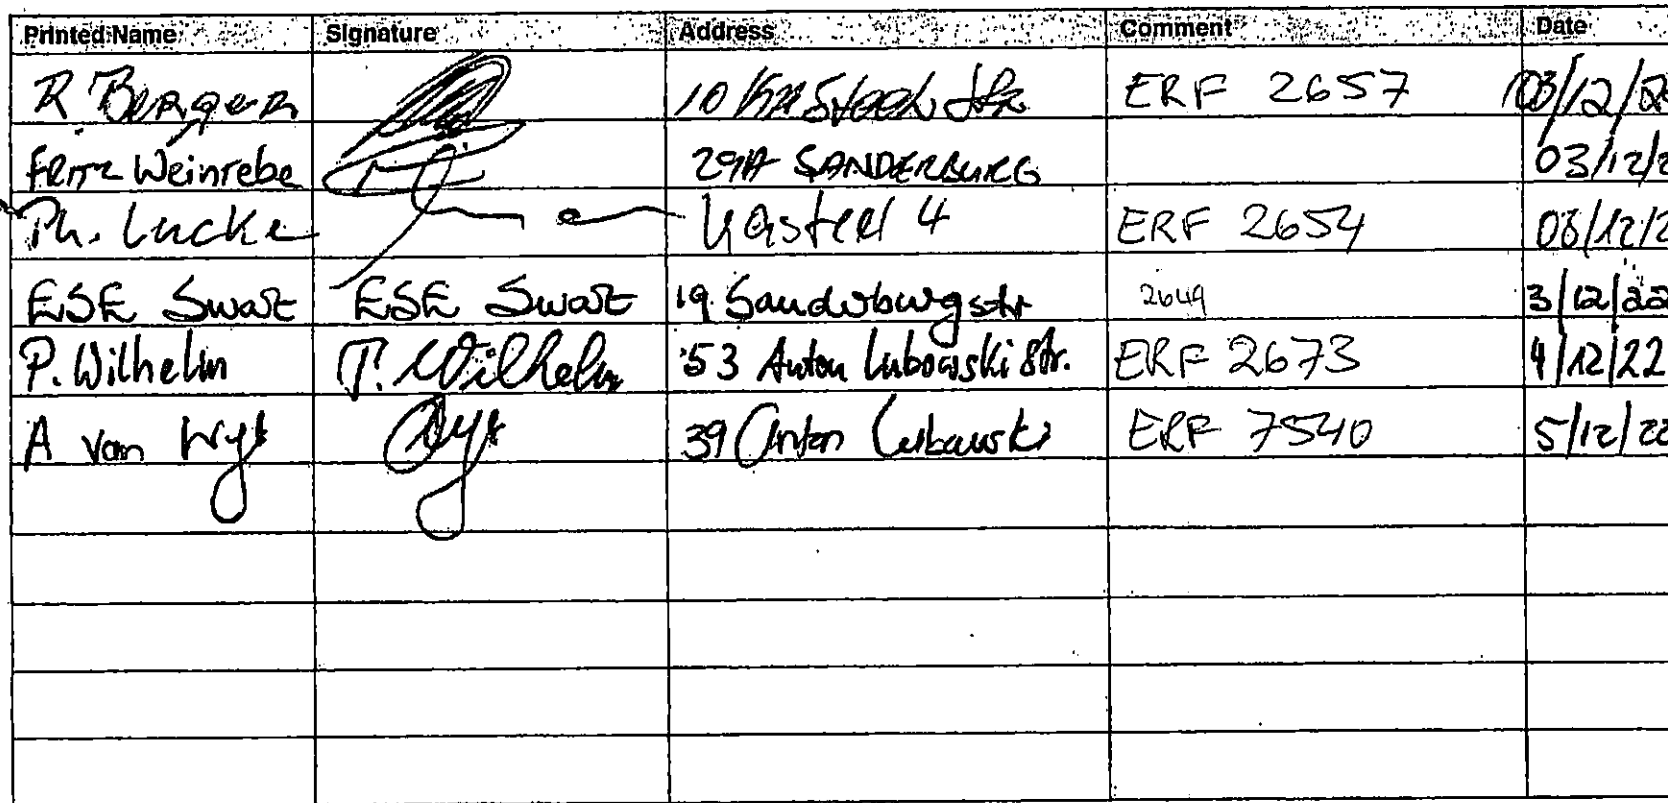 Printed Name Signature Address Comment Date
R. Berger 10 ERF 2657 03/12/2
Fritz Weinrebe 29A SANDERBURG 03/12/2
Ph. Lucke Kasteel 4 ERF 2654 03/12/2
ESE Swart ESE Swart 19 Sanderburgstr 2649 3/12/22
P. Wilhelm P. Wilhelm 53 Anton Lubowski Str. ERF 2673 4/12/22
A van Wyk 39 Anton Lubowski ERF 7540 5/12/22